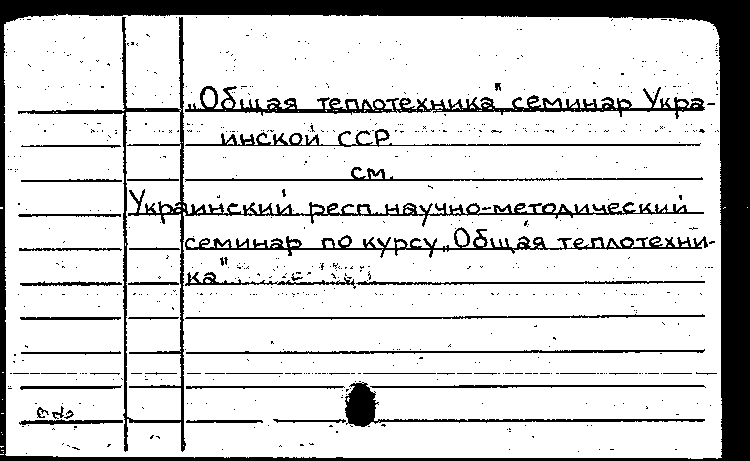 „Общая теплотехника", семинар Укра-
инской ССР.
см.
Украинский респ. научно-методический
семинар по курсу „Общая теплотехни-
ка"